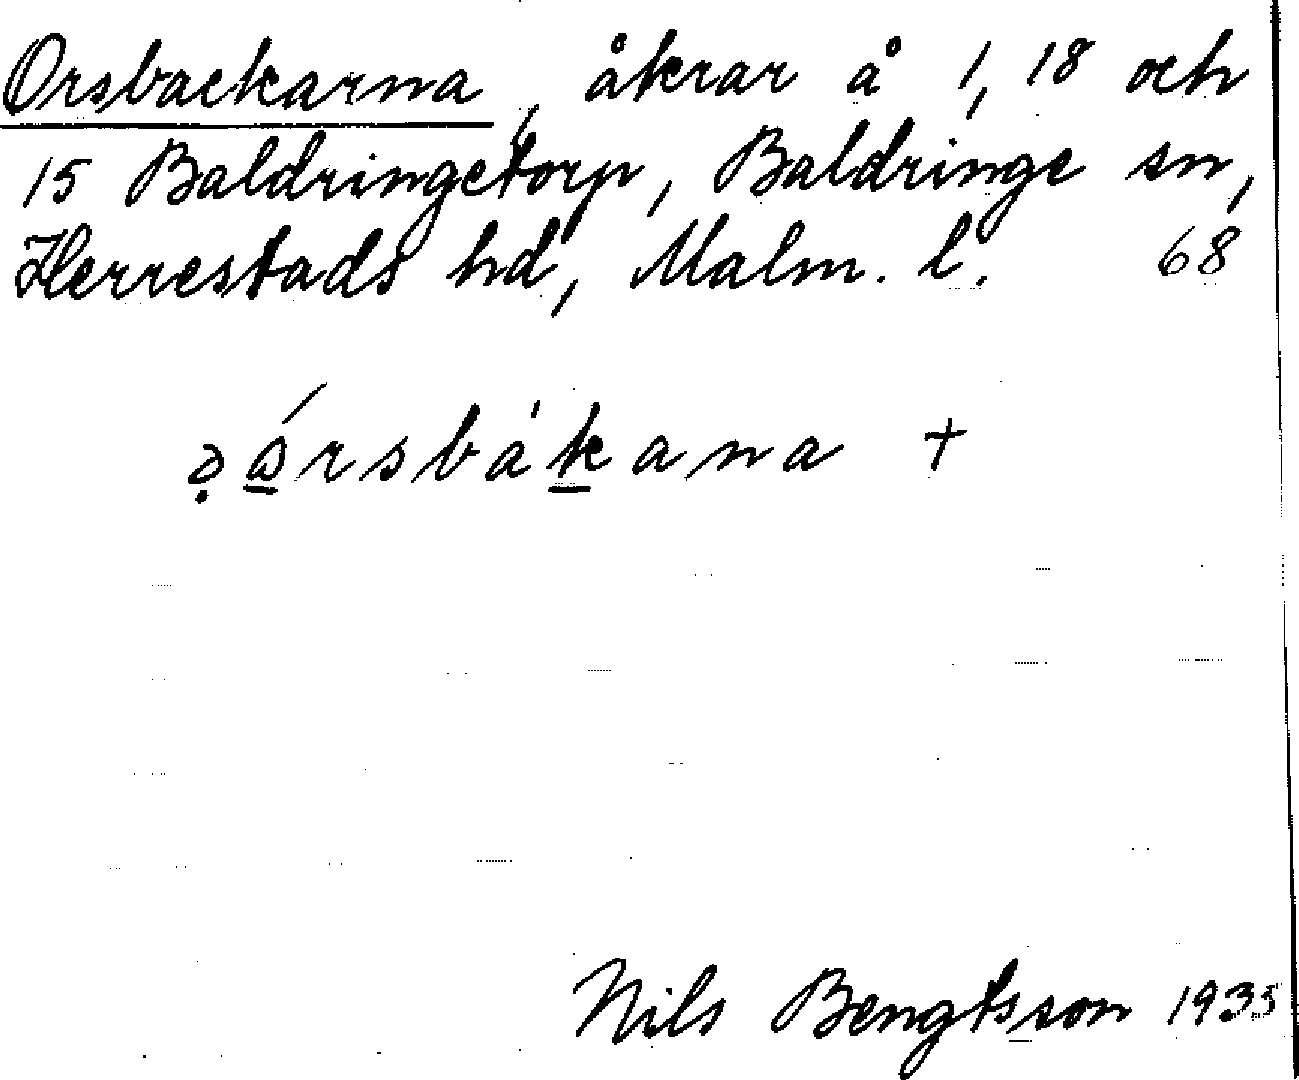 Orsbackarna, åkrar å 1, 18 och
15 Baldringetorp, Baldringe sn,
Herrestads hd, Malm. l. 68
†
Nils Bengtsson 1933